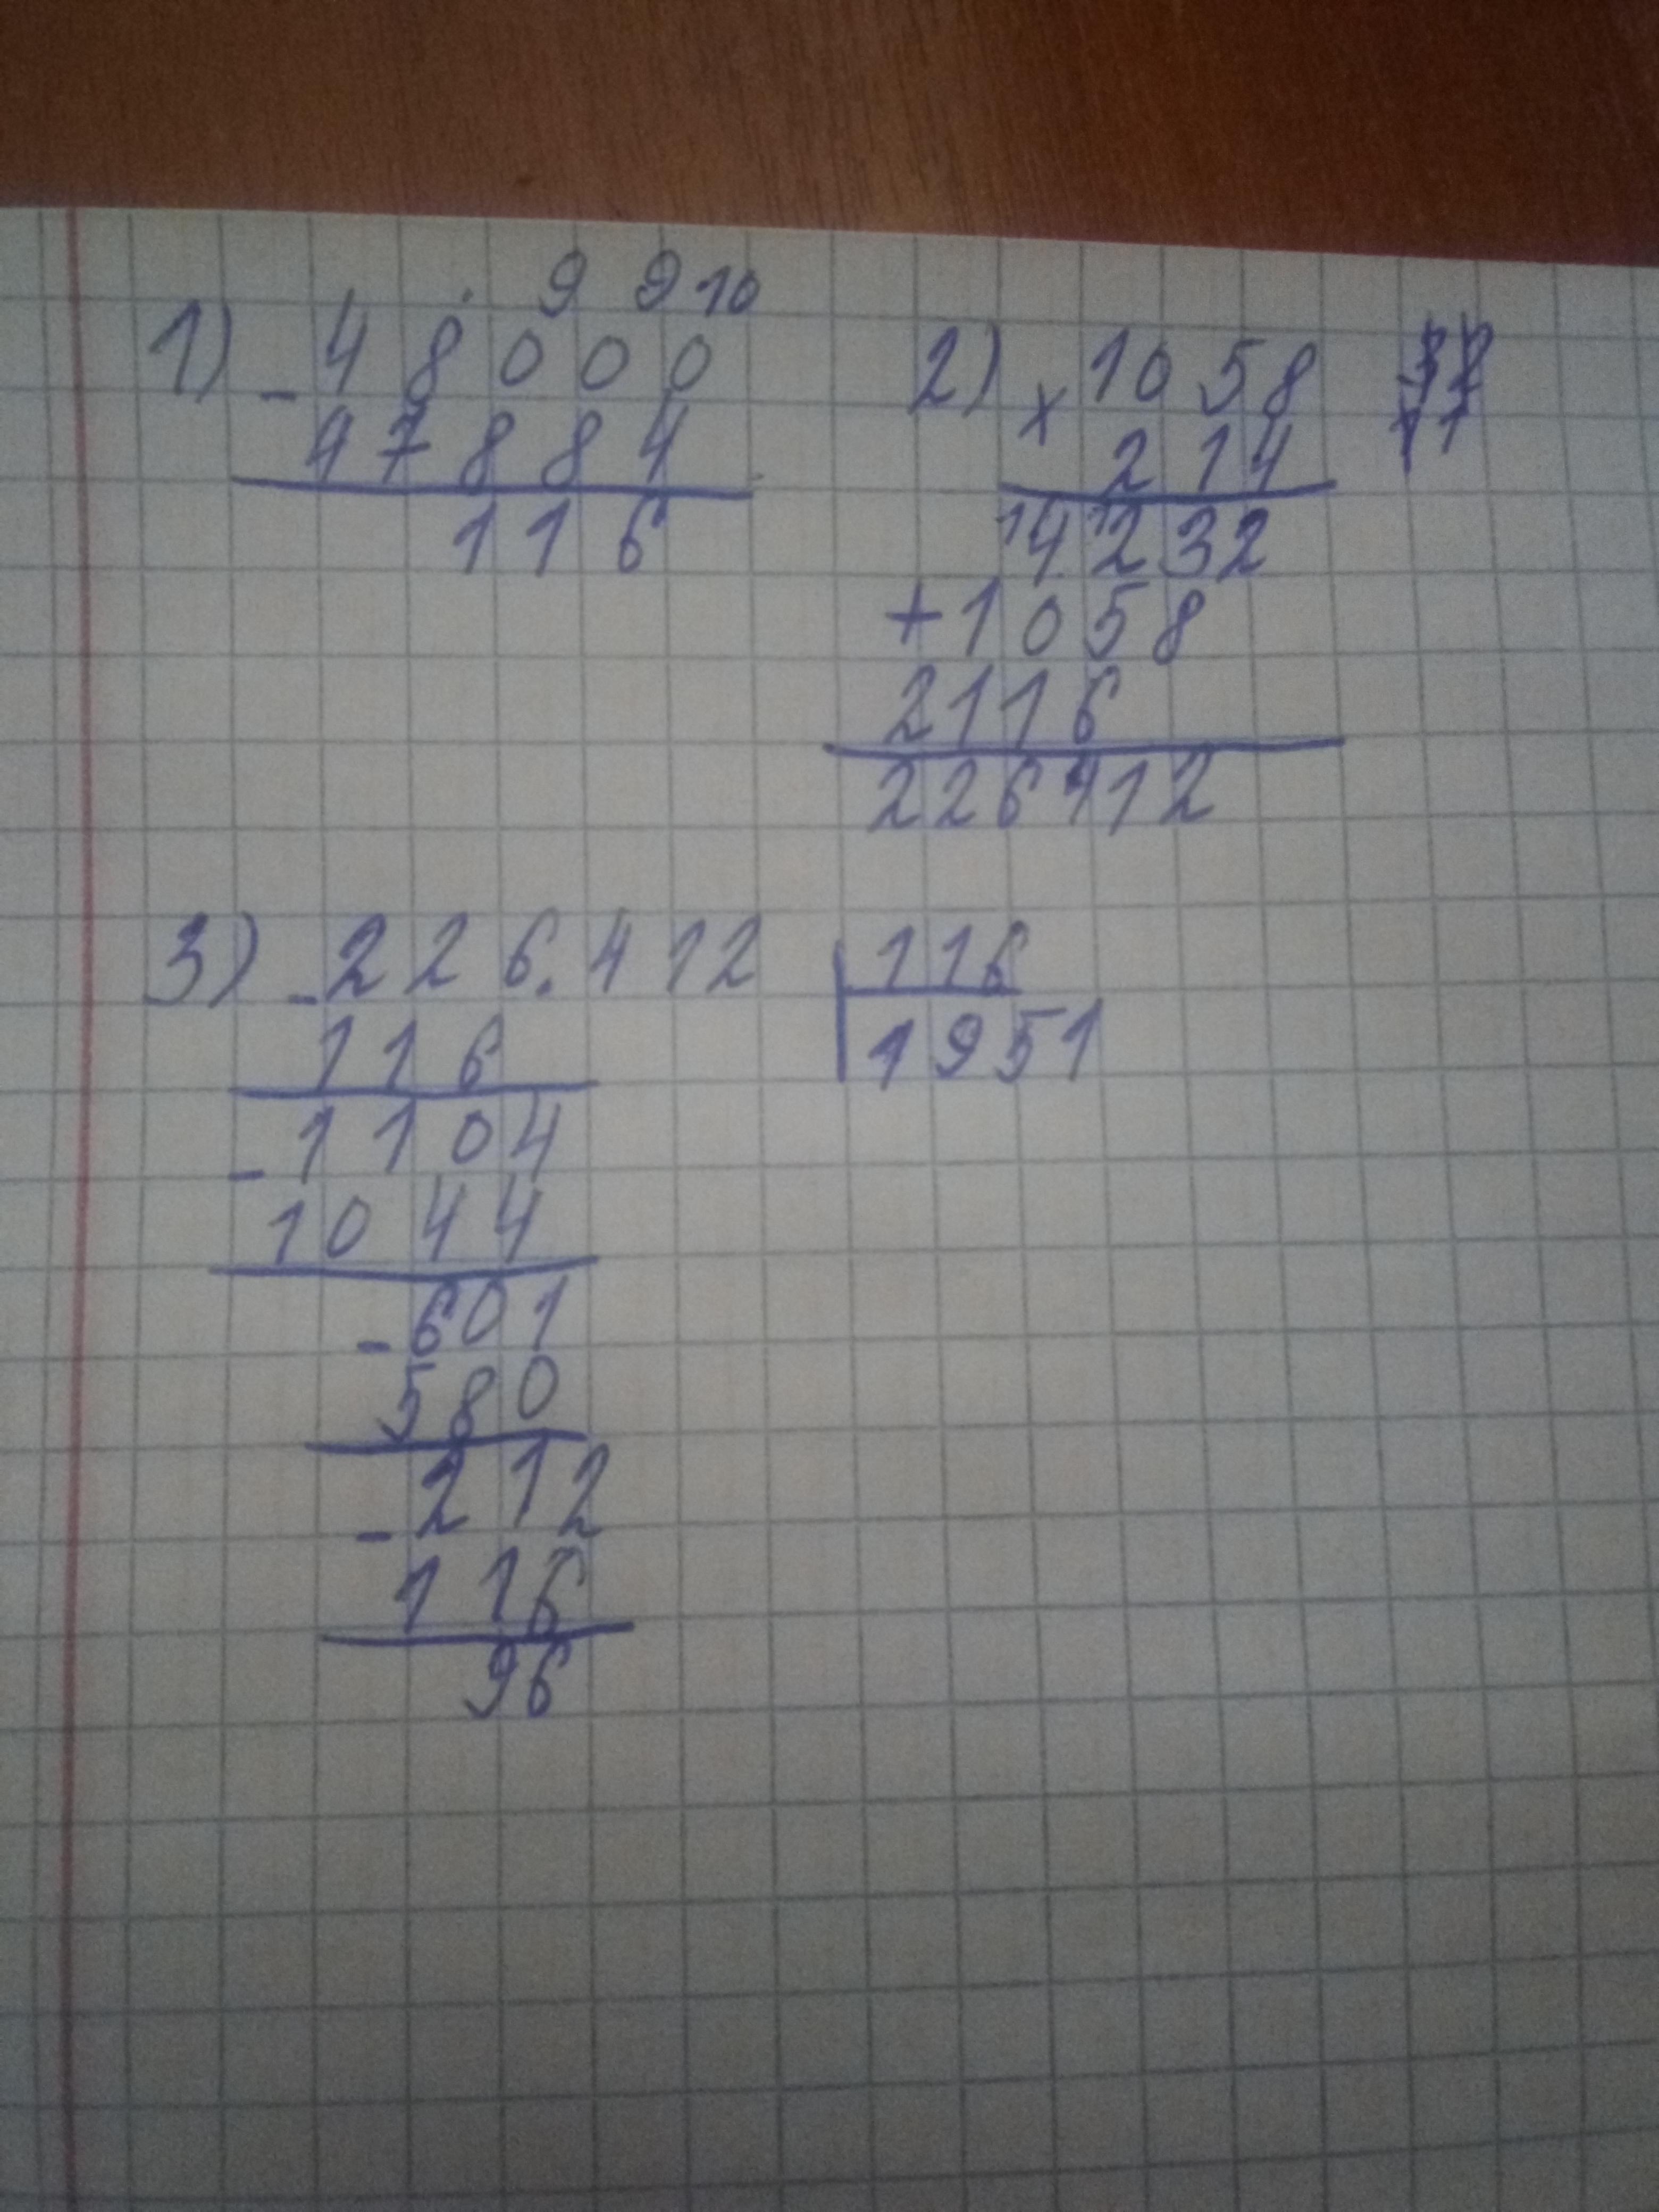 9 9 10
1) - 48000
47884
116
2) x 1058
214
4232
+ 1058
2116
226412
3) - 226.412 | 116
1951
116
- 1104
1044
- 601
580
- 212
116
96